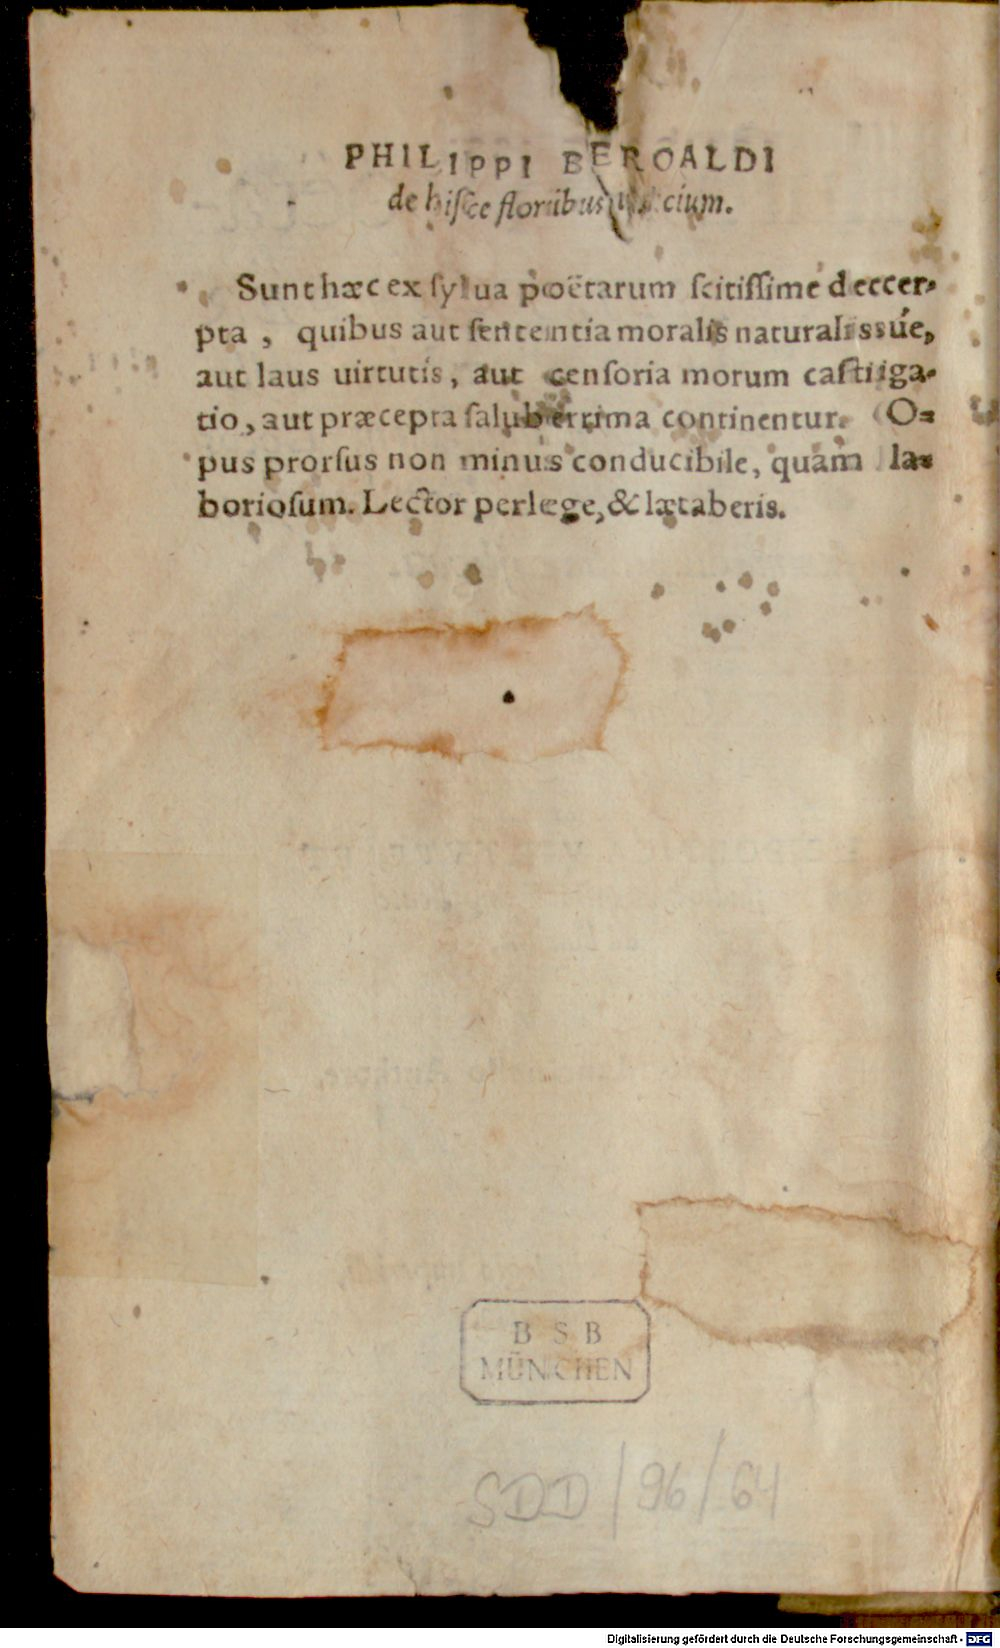 PHILIPPI BEROALDI
de hisce floribus iudicium.
Sunt hæc ex sylua poëtarum scitissime deccer-
pta, quibus aut sententia moralis naturalisúe,
aut laus uirtutis, aut censoria morum castiga-
tio, aut præcepta saluberrima continentur. O-
pus prorsus non minus conducibile, quam la-
boriosum. Lector perlege, & lætaberis.
B S B
MÜNCHEN
SDD/96/64
Digitalisierung gefördert durch die Deutsche Forschungsgemeinschaft - DFG